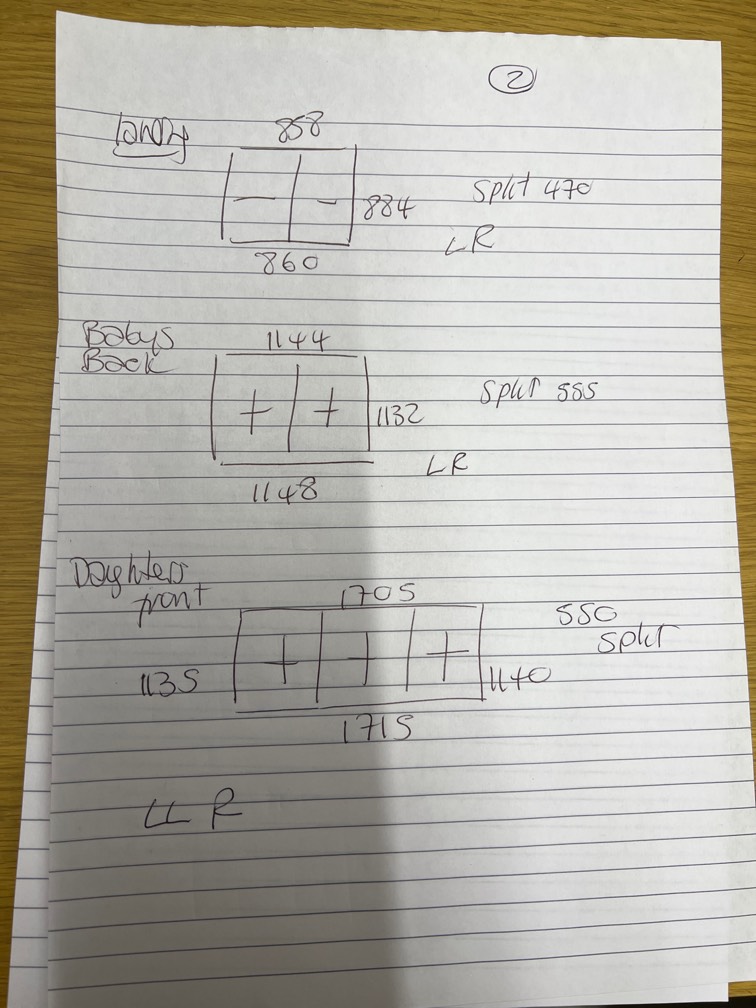 2
858
884
Split 470
LR
860
Babys
Back
1144
1132
Split 555
LR
1148
Daughters
front
1705
550
Split
1135
1140
1715
LL R